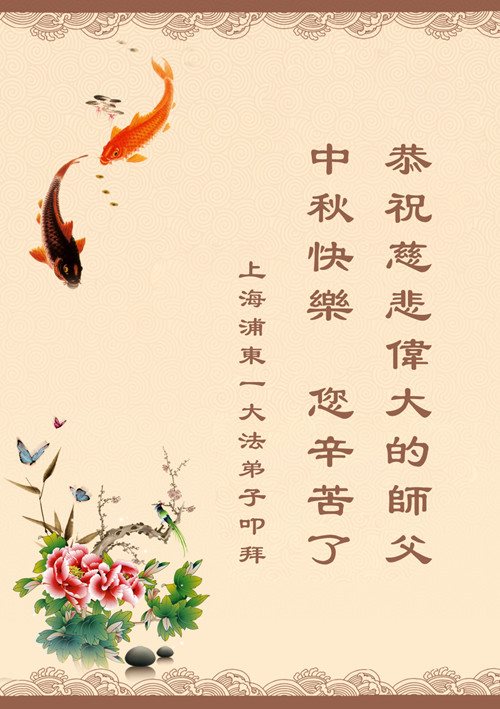 恭祝慈悲偉大的師父
中秋快樂　您辛苦了
上海浦東一大法弟子叩拜